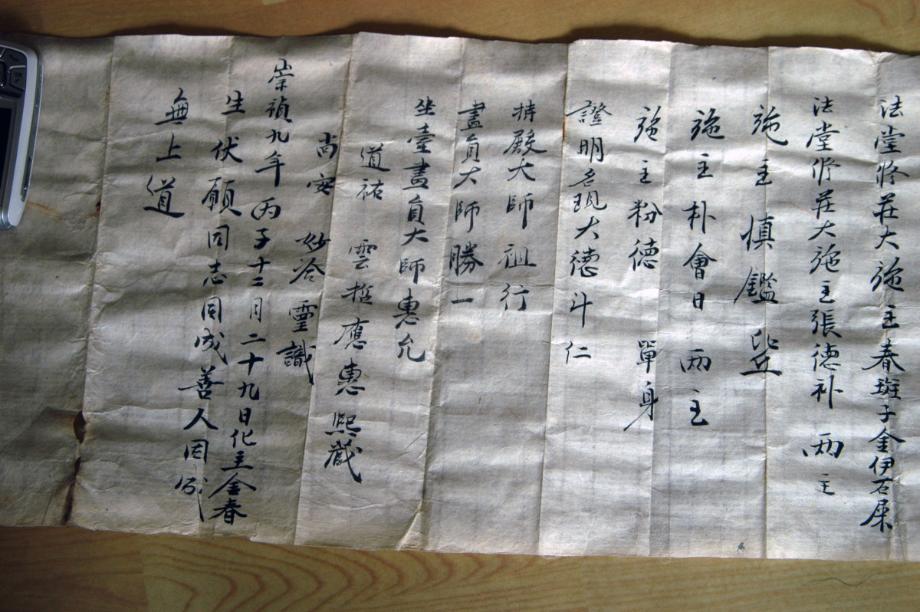 法堂修莊大施主春班子金伊石屎
法堂修莊大施主張德補 兩主
施主慎鑑 比丘
施主朴會日 兩主
施主粉德 單身
證明名現大德斗仁
持殿大師祖行
畫員大師勝一
坐臺畫員大師惠允
道祐 雲哲應惠熙藏
尚安 妙合靈識
崇禎九年丙子十二月二十九日化主金春
生伏願同志同成善人因成
無上道